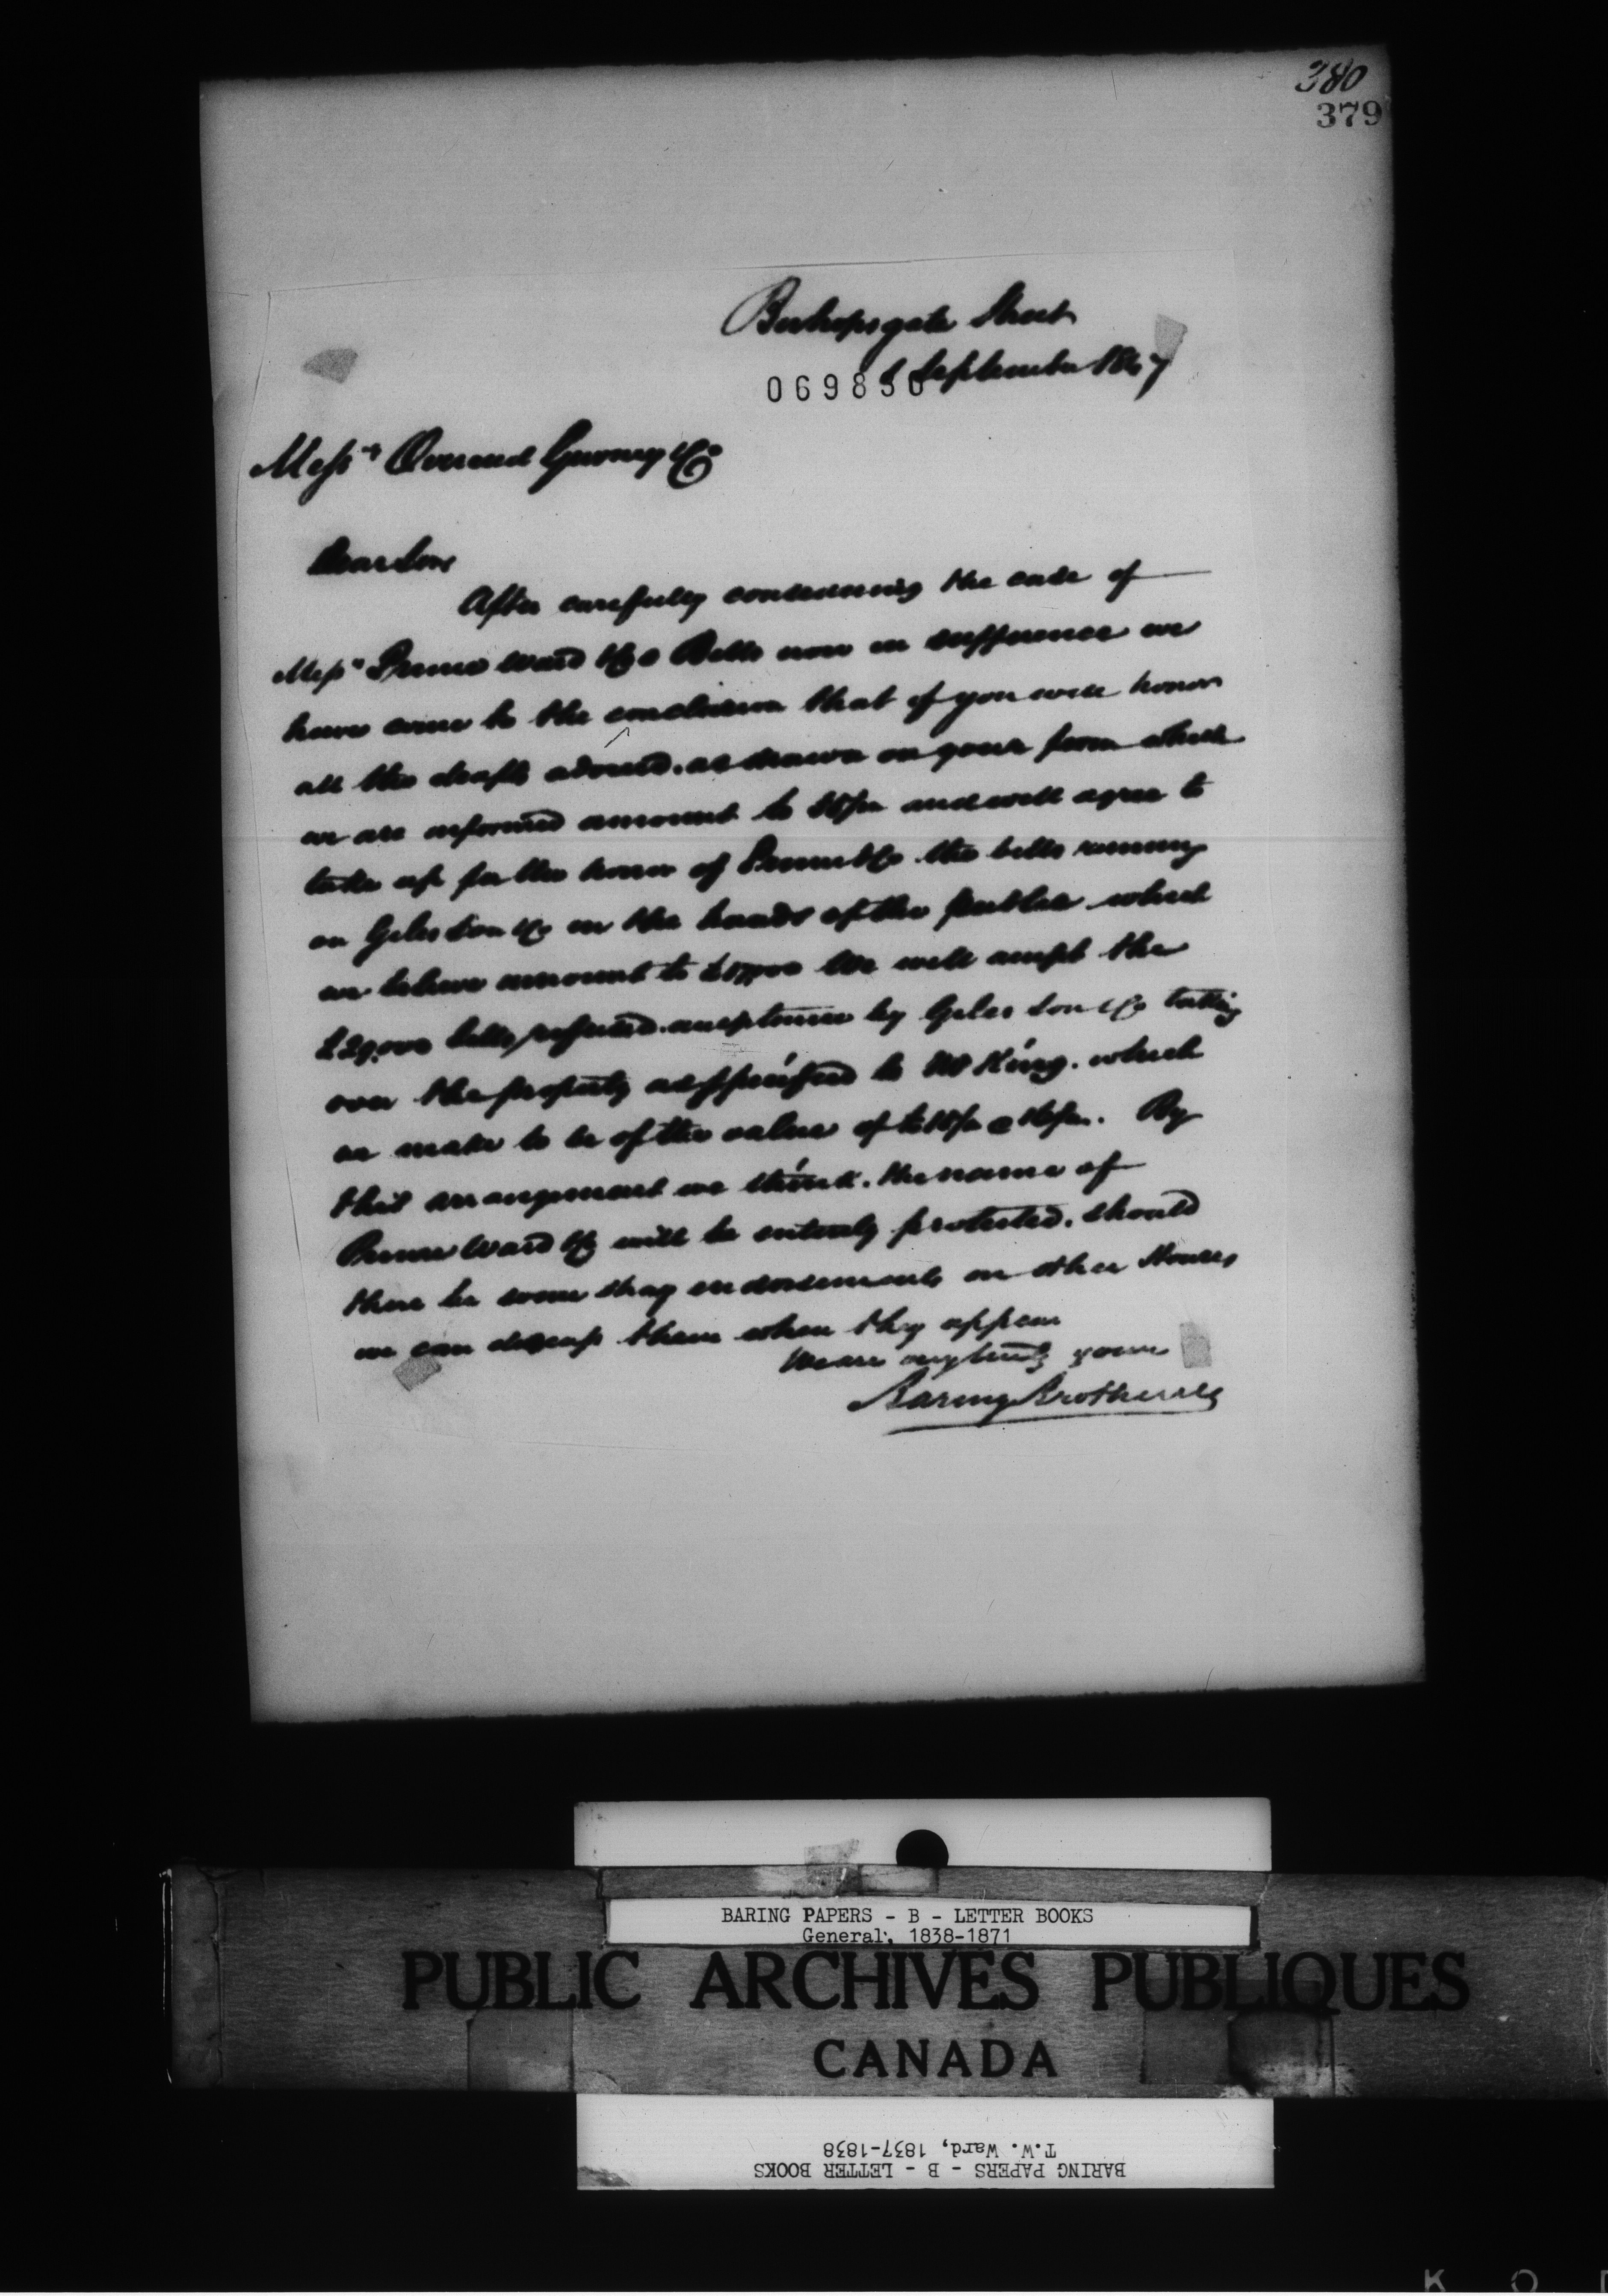 380
379
Bishopsgate Street
069850
September 1847
Mess.rs Overend Gurney & Co
Dear Sirs
After carefully considering the case of
Mess.rs Prime Ward & Co's Bills now in sufferance we
have come to the conclusion that if you will honor
all the drafts advised as drawn on your firm which
we are informed amount to and will agree to
take up for the honor of Prime & Co the bills running
on Giles Son & Co in the hands of the public which
we believe amount to We will accept the
£29,000 bills refused acceptance by Giles Son & Co taking
over the property as apprised to Mr King. which
we make to be of the value of By
this arrangement we think. the name of
Prime Ward & Co will be entirely protected. should
there be some stray endorsements on other Houses
we can discuss them when they appear
We are very truly yours
Baring Brothers & Co
BARING PAPERS - B - LETTER BOOKS
General, 1838-1871
PUBLIC ARCHIVES PUBLIQUES
CANADA
T.W. Ward, 1837-1838
BARING PAPERS - B - LETTER BOOKS
K O